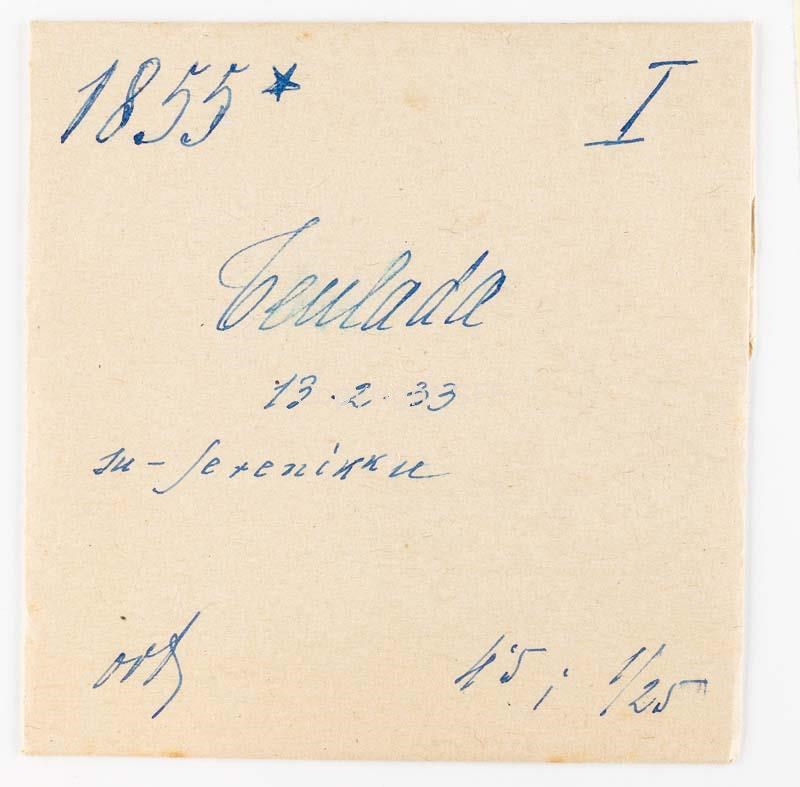 1855* I
Teulada
13.2.33
su-Serenikku
ort 4'5; 1/25